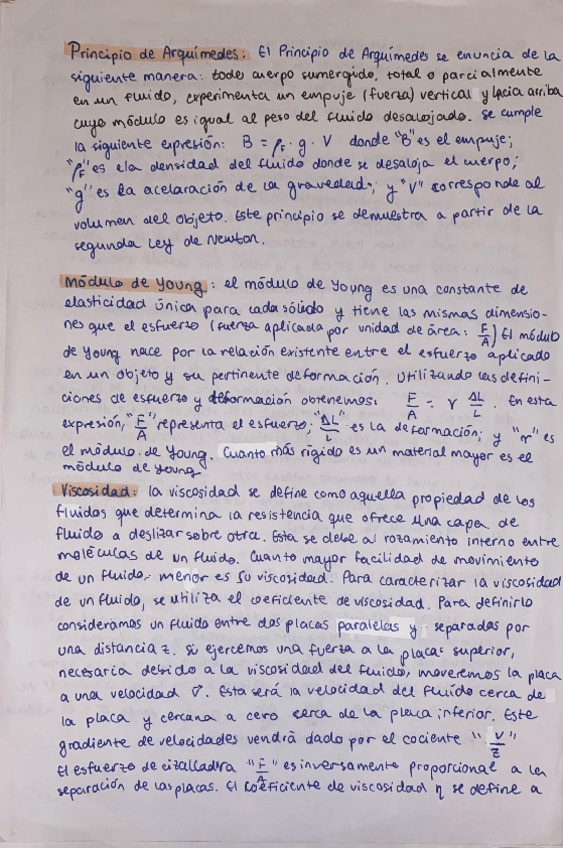 Principio de Arquímedes: El Principio de Arquímedes se enuncia de la
siguiente manera: todo cuerpo sumergido, total o parcialmente
en un fluido, experimenta un empuje (fuerza) vertical y hacia arriba
cuyo módulo es igual al peso del fluido desalojado. Se cumple
la siguiente expresión: B = ρF · g · V donde "B" es el empuje;
"ρF" es la densidad del fluido donde se desaloja el cuerpo;
"g" es la acelaración de la gravedad; y "V" corresponde al
volumen del objeto. Este principio se demuestra a partir de la
segunda Ley de Newton.
Módulo de Young: el módulo de Young es una constante de
elasticidad única para cada sólido y tiene las mismas dimensio-
nes que el esfuerzo (fuerza aplicada por unidad de área: F/A) El módulo
de Young nace por la relación existente entre el esfuerzo aplicado
en un objeto y su pertinente deformación. Utilizando las defini-
ciones de esfuerzo y deformación obtenemos: F/A = Y ΔL/L. En esta
expresión, "F/A" representa el esfuerzo; "ΔL/L" es la deformación; y "Y" es
el módulo de Young. Cuanto más rígido es un material mayor es el
módulo de Young.
Viscosidad: la viscosidad se define como aquella propiedad de los
fluidos que determina la resistencia que ofrece una capa de
fluido a deslizar sobre otra. Esta se debe al rozamiento interno entre
moléculas de un fluido. Cuanto mayor facilidad de movimiento
de un fluido, menor es su viscosidad. Para caracterizar la viscosidad
de un fluido, se utiliza el coeficiente de viscosidad. Para definirlo
consideramos un fluido entre dos placas paralelas y separadas por
una distancia z. Si ejercemos una fuerza a la placa superior,
necesaria debido a la viscosidad del fluido, moveremos la placa
a una velocidad v. Esta será la velocidad del fluido cerca de
la placa y cercana a cero cerca de la placa inferior. Este
gradiente de velocidades vendrá dado por el cociente "V/z"
El esfuerzo de cizalladura "F/A" es inversamente proporcional a la
separación de las placas. El coeficiente de viscosidad η se define a